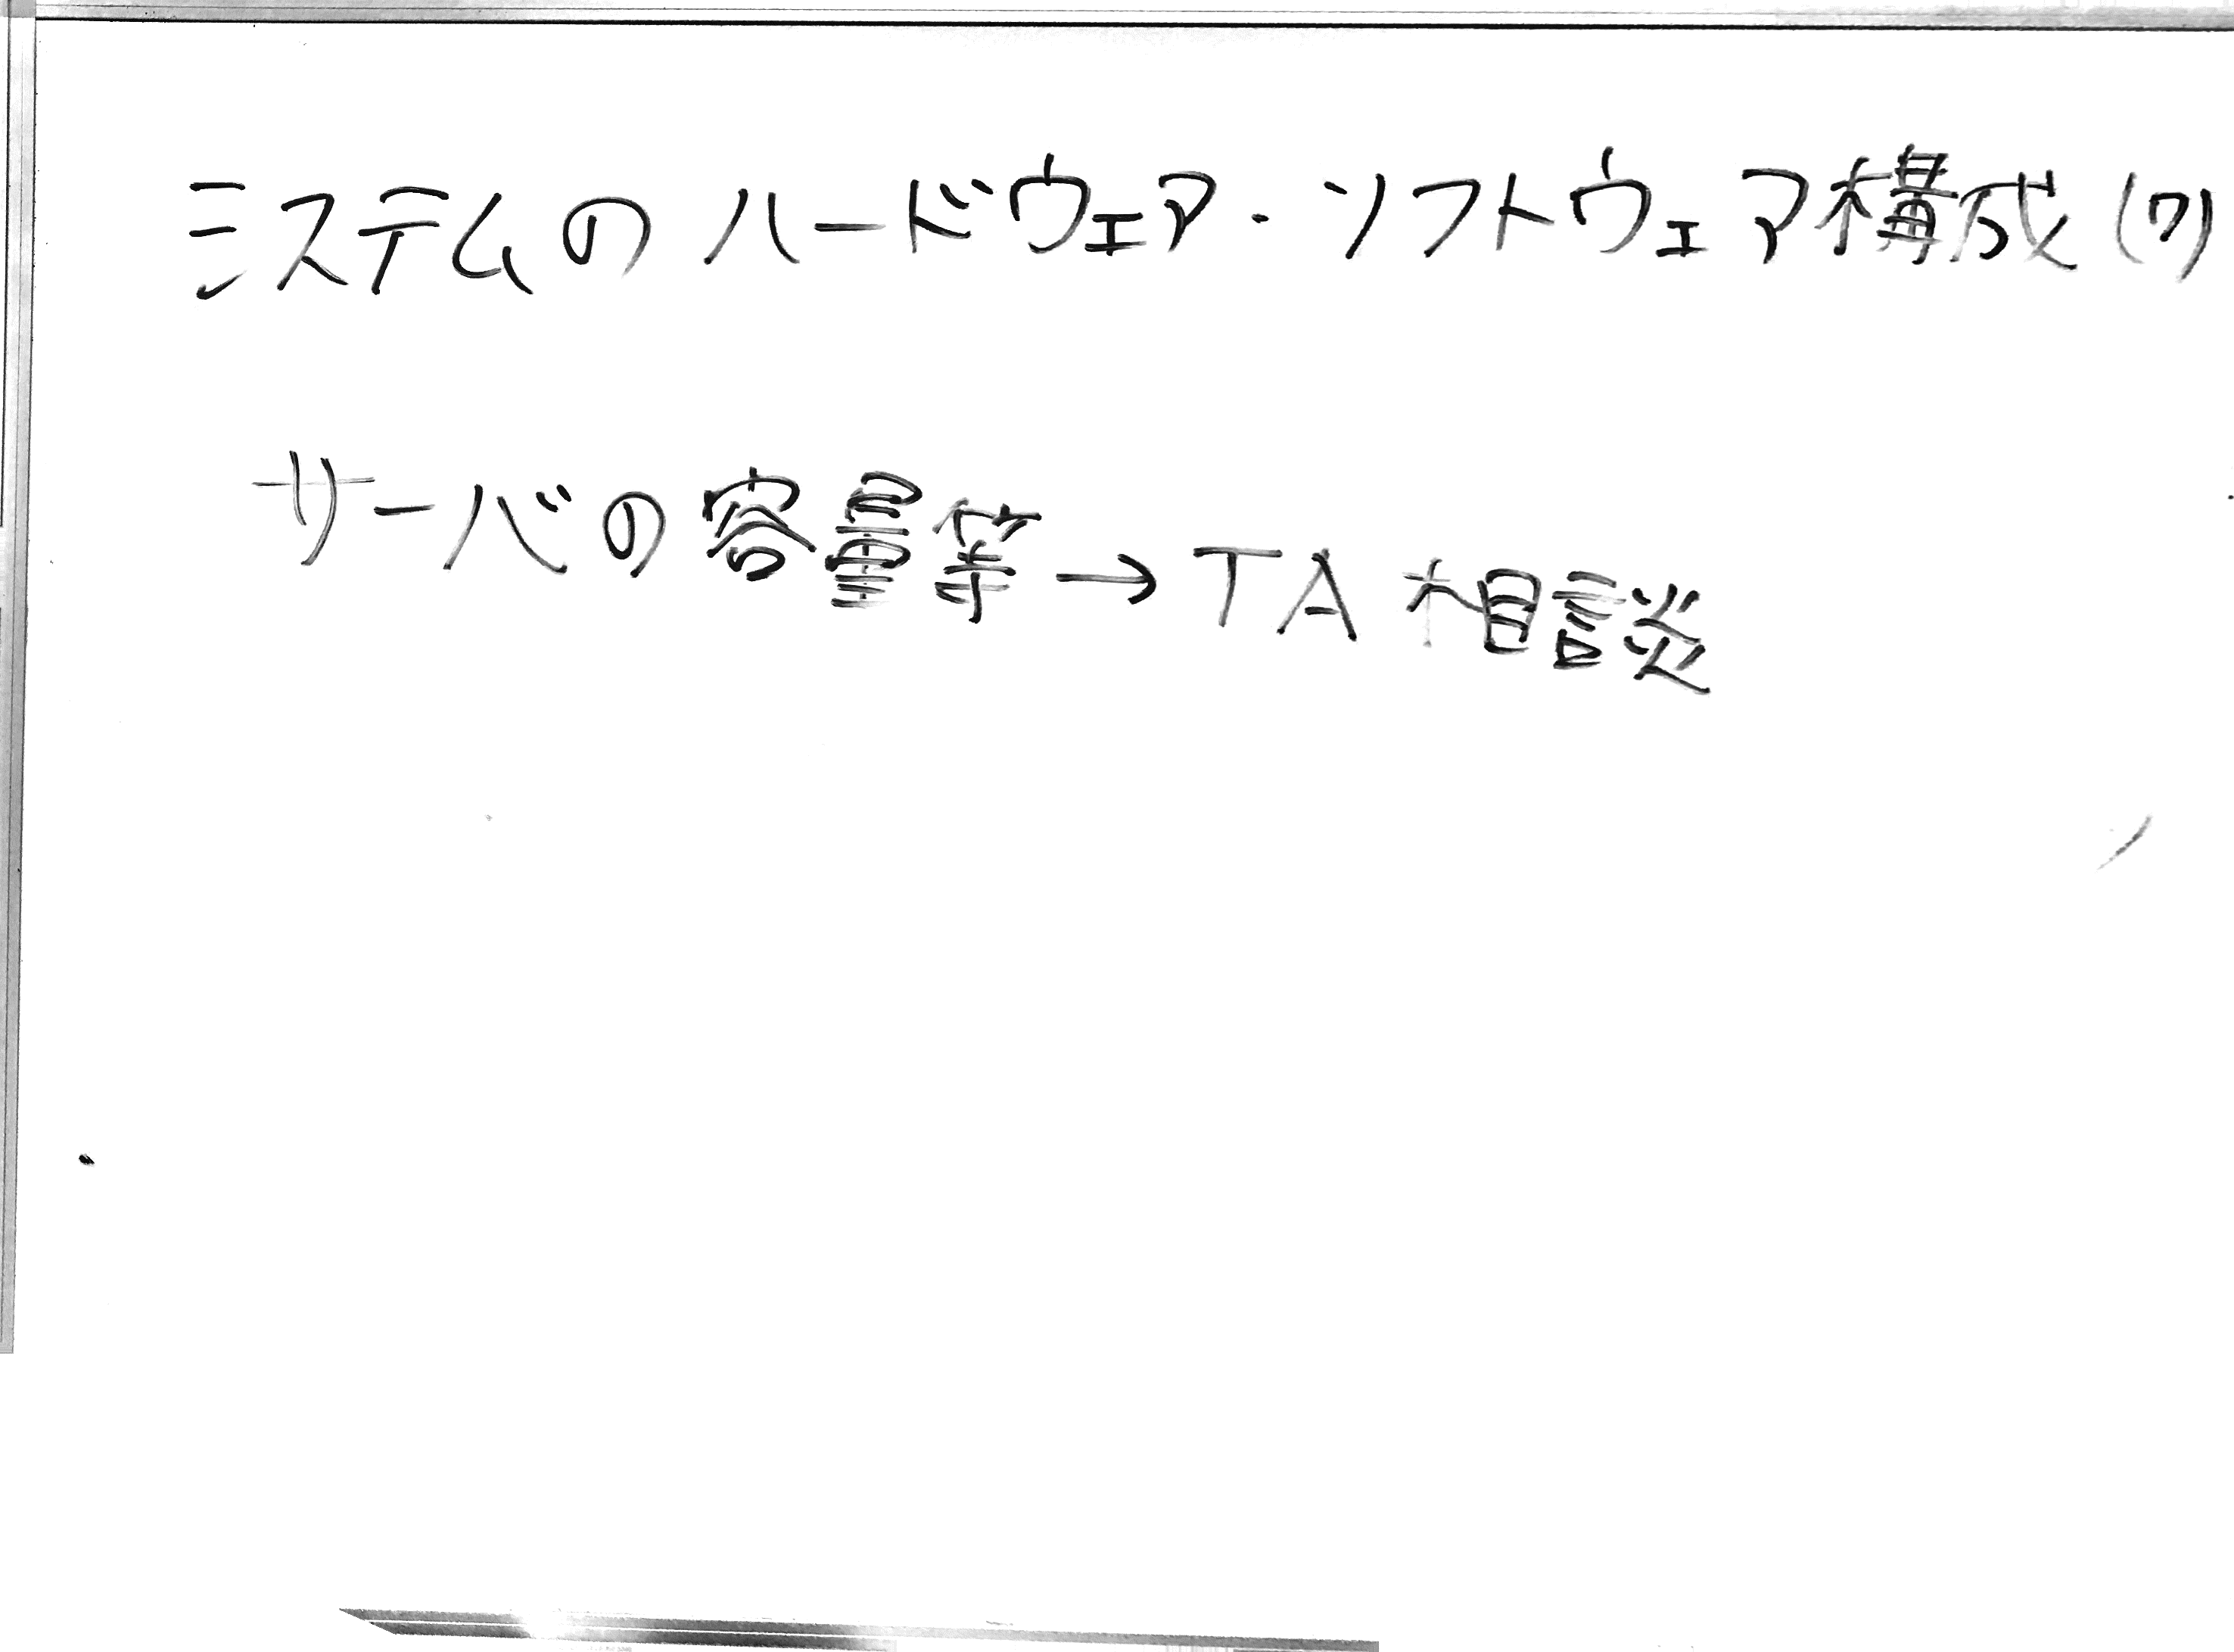 システムのハードウェア・ソフトウェア構成(7)
サーバの容量等→TA相談